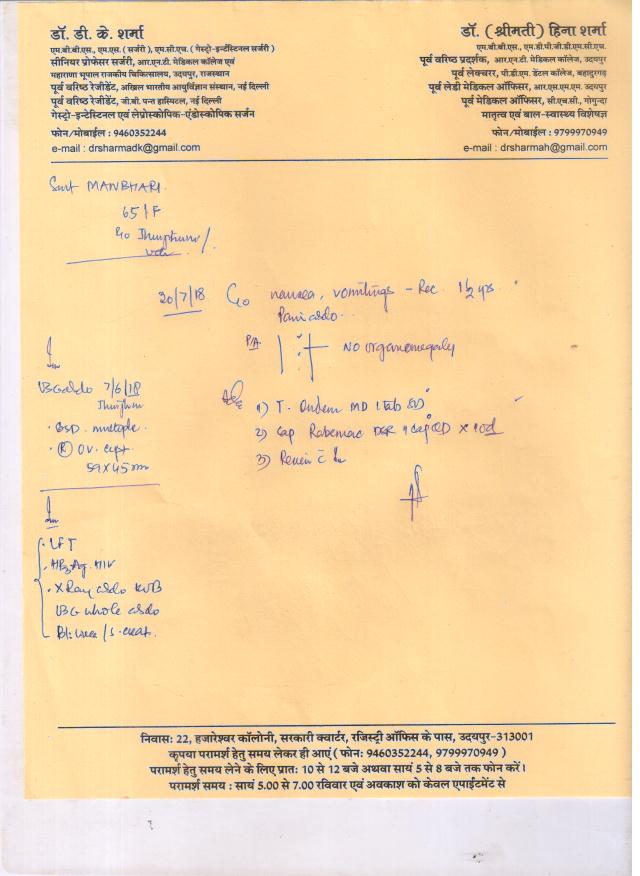 डॉ. डी. के. शर्मा
एम.बी.बी.एस., एम.एस. ( सर्जरी ), एम.सी.एच. ( गेस्ट्रो-इन्टेंस्टिनल सर्जरी )
सीनियर प्रोफेसर सर्जरी, आर.एन.टी. मेडिकल कॉलेज एवं
महाराणा भूपाल राजकीय चिकित्सालय, उदयपुर, राजस्थान
पूर्व वरिष्ठ रेजीडेंट, अखिल भारतीय आयुर्विज्ञान संस्थान, नई दिल्ली
पूर्व वरिष्ठ रेजीडेंट, जी.बी. पन्त हास्पिटल, नई दिल्ली
गेस्ट्रो-इन्टेस्टिनल एवं लेप्रोस्कोपिक-एंडोस्कोपिक सर्जन
फोन/मोबाईल : 9460352244
e-mail : drsharmadk@gmail.com
डॉ. (श्रीमती) हिना शर्मा
एम.बी.बी.एस., एम.डी.पी.जी.डी.एम.सी.एच.
पूर्व वरिष्ठ प्रदर्शक, आर.एन.टी. मेडिकल कॉलेज, उदयपुर
पूर्व लेक्चरर, पी.डी.एम. डेंटल कॉलेज, बहादुरगढ़
पूर्व लेडी मेडिकल ऑफिसर, आर.एस.एम.एम. उदयपुर
पूर्व मेडिकल ऑफिसर, सी.एच.सी., गोगुन्दा
मातृत्व एवं बाल-स्वास्थ्य विशेषज्ञ
फोन/मोबाईल : 9799970949
e-mail : drsharmah@gmail.com
Smt MANBHARI
65/F
20/7/18 C/o nausea, vomitings - Rec. 1½ yrs
Pain abdo.
P/A NO organomegaly
USG abdo 7/6/18
GSD. multiple.
(R) ov. cyst
59 x 45 mm
1) T. Ondem MD 1 tab
2) Cap Rabemac DSR 1 cap OD x 10d
3) Review c̄
LFT
HBsAg. HIV
X Ray abdo KUB
USG whole abdo
Bl. urea / S. creat.
निवास: 22, हजारेश्वर कॉलोनी, सरकारी क्वार्टर, रजिस्ट्री ऑफिस के पास, उदयपुर-313001
कृपया परामर्श हेतु समय लेकर ही आएं ( फोन: 9460352244, 9799970949 )
परामर्श हेतु समय लेने के लिए प्रातः 10 से 12 बजे अथवा सायं 5 से 8 बजे तक फोन करें।
परामर्श समय : सायं 5.00 से 7.00 रविवार एवं अवकाश को केवल एपाईंटमेंट से